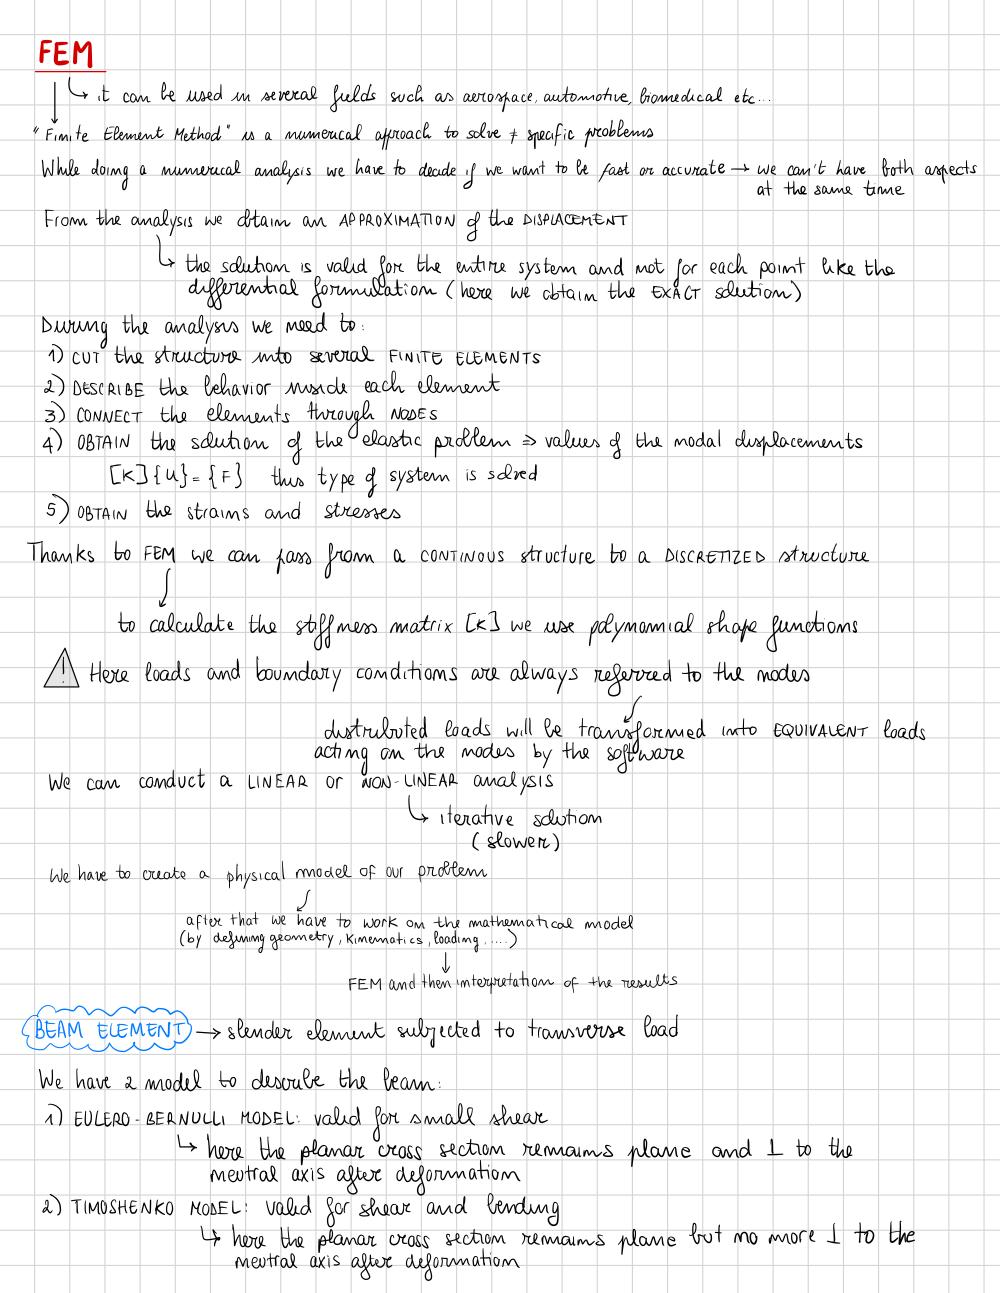 FEM
↳ it can be used in several fields such as aerospace, automotive, biomedical etc...
"Finite Element Method" is a numerical approach to solve ≠ specific problems
While doing a numerical analysis we have to decide if we want to be fast or accurate → we can't have both aspects
at the same time
From the analysis we obtain an APPROXIMATION of the DISPLACEMENT
↳ the solution is valid for the entire system and not for each point like the
differential formulation (here we obtain the EXACT solution)
During the analysis we need to:
1) CUT the structure into several FINITE ELEMENTS
2) DESCRIBE the behavior inside each element
3) CONNECT the elements through NODES
4) OBTAIN the solution of the elastic problem ⇒ values of the nodal displacements
[K]{U}={F} this type of system is solved
5) OBTAIN the strains and stresses
Thanks to FEM we can pass from a CONTINOUS structure to a DISCRETIZED structure
to calculate the stiffness matrix [K] we use polynomial shape functions
⚠ Here loads and boundary conditions are always referred to the nodes
distributed loads will be transformed into EQUIVALENT loads
acting on the nodes by the software
We can conduct a LINEAR or NON-LINEAR analysis
↳ iterative solution
(slower)
We have to create a physical model of our problem
after that we have to work on the mathematical model
(by defining geometry, kinematics, loading.....)
↓
FEM and then interpretation of the results
BEAM ELEMENT → slender element subjected to transverse load
We have 2 model to describe the beam:
1) EULERO-BERNULLI MODEL: valid for small shear
↳ here the planar cross section remains plane and ⊥ to the
neutral axis after deformation
2) TIMOSHENKO MODEL: valid for shear and bending
↳ here the planar cross section remains plane but no more ⊥ to the
neutral axis after deformation